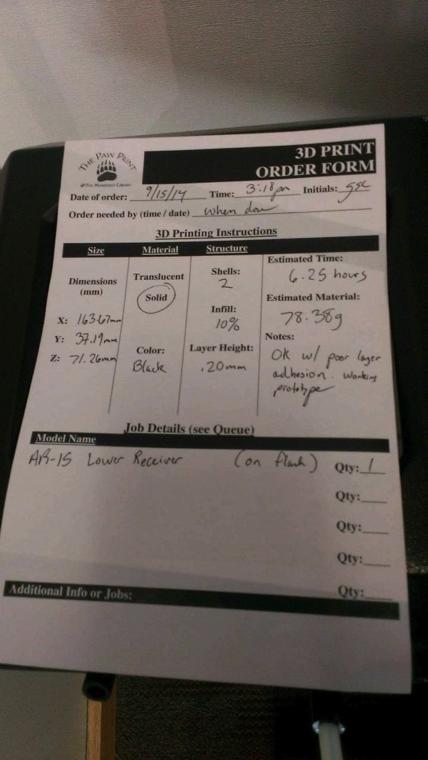 THE PAW PRINT
3D PRINT
ORDER FORM
Date of order: 9/15/14 Time: 3:18pm Initials:
Order needed by (time / date) when done
3D Printing Instructions
Size Material Structure
Dimensions
(mm)
X: 163.67mm
Y: 37.19mm
Z: 71.26mm
Translucent
Solid
Color:
Black
Shells:
2
Infill:
10%
Layer Height:
.20mm
Estimated Time:
6.25 hours
Estimated Material:
78.38g
Notes:
OK w/ poor layer
adhesion. working
prototype
Job Details (see Queue)
Model Name
AR-15 Lower Receiver (on flash) Qty: 1
Qty:
Qty:
Qty:
Additional Info or Jobs: Qty: